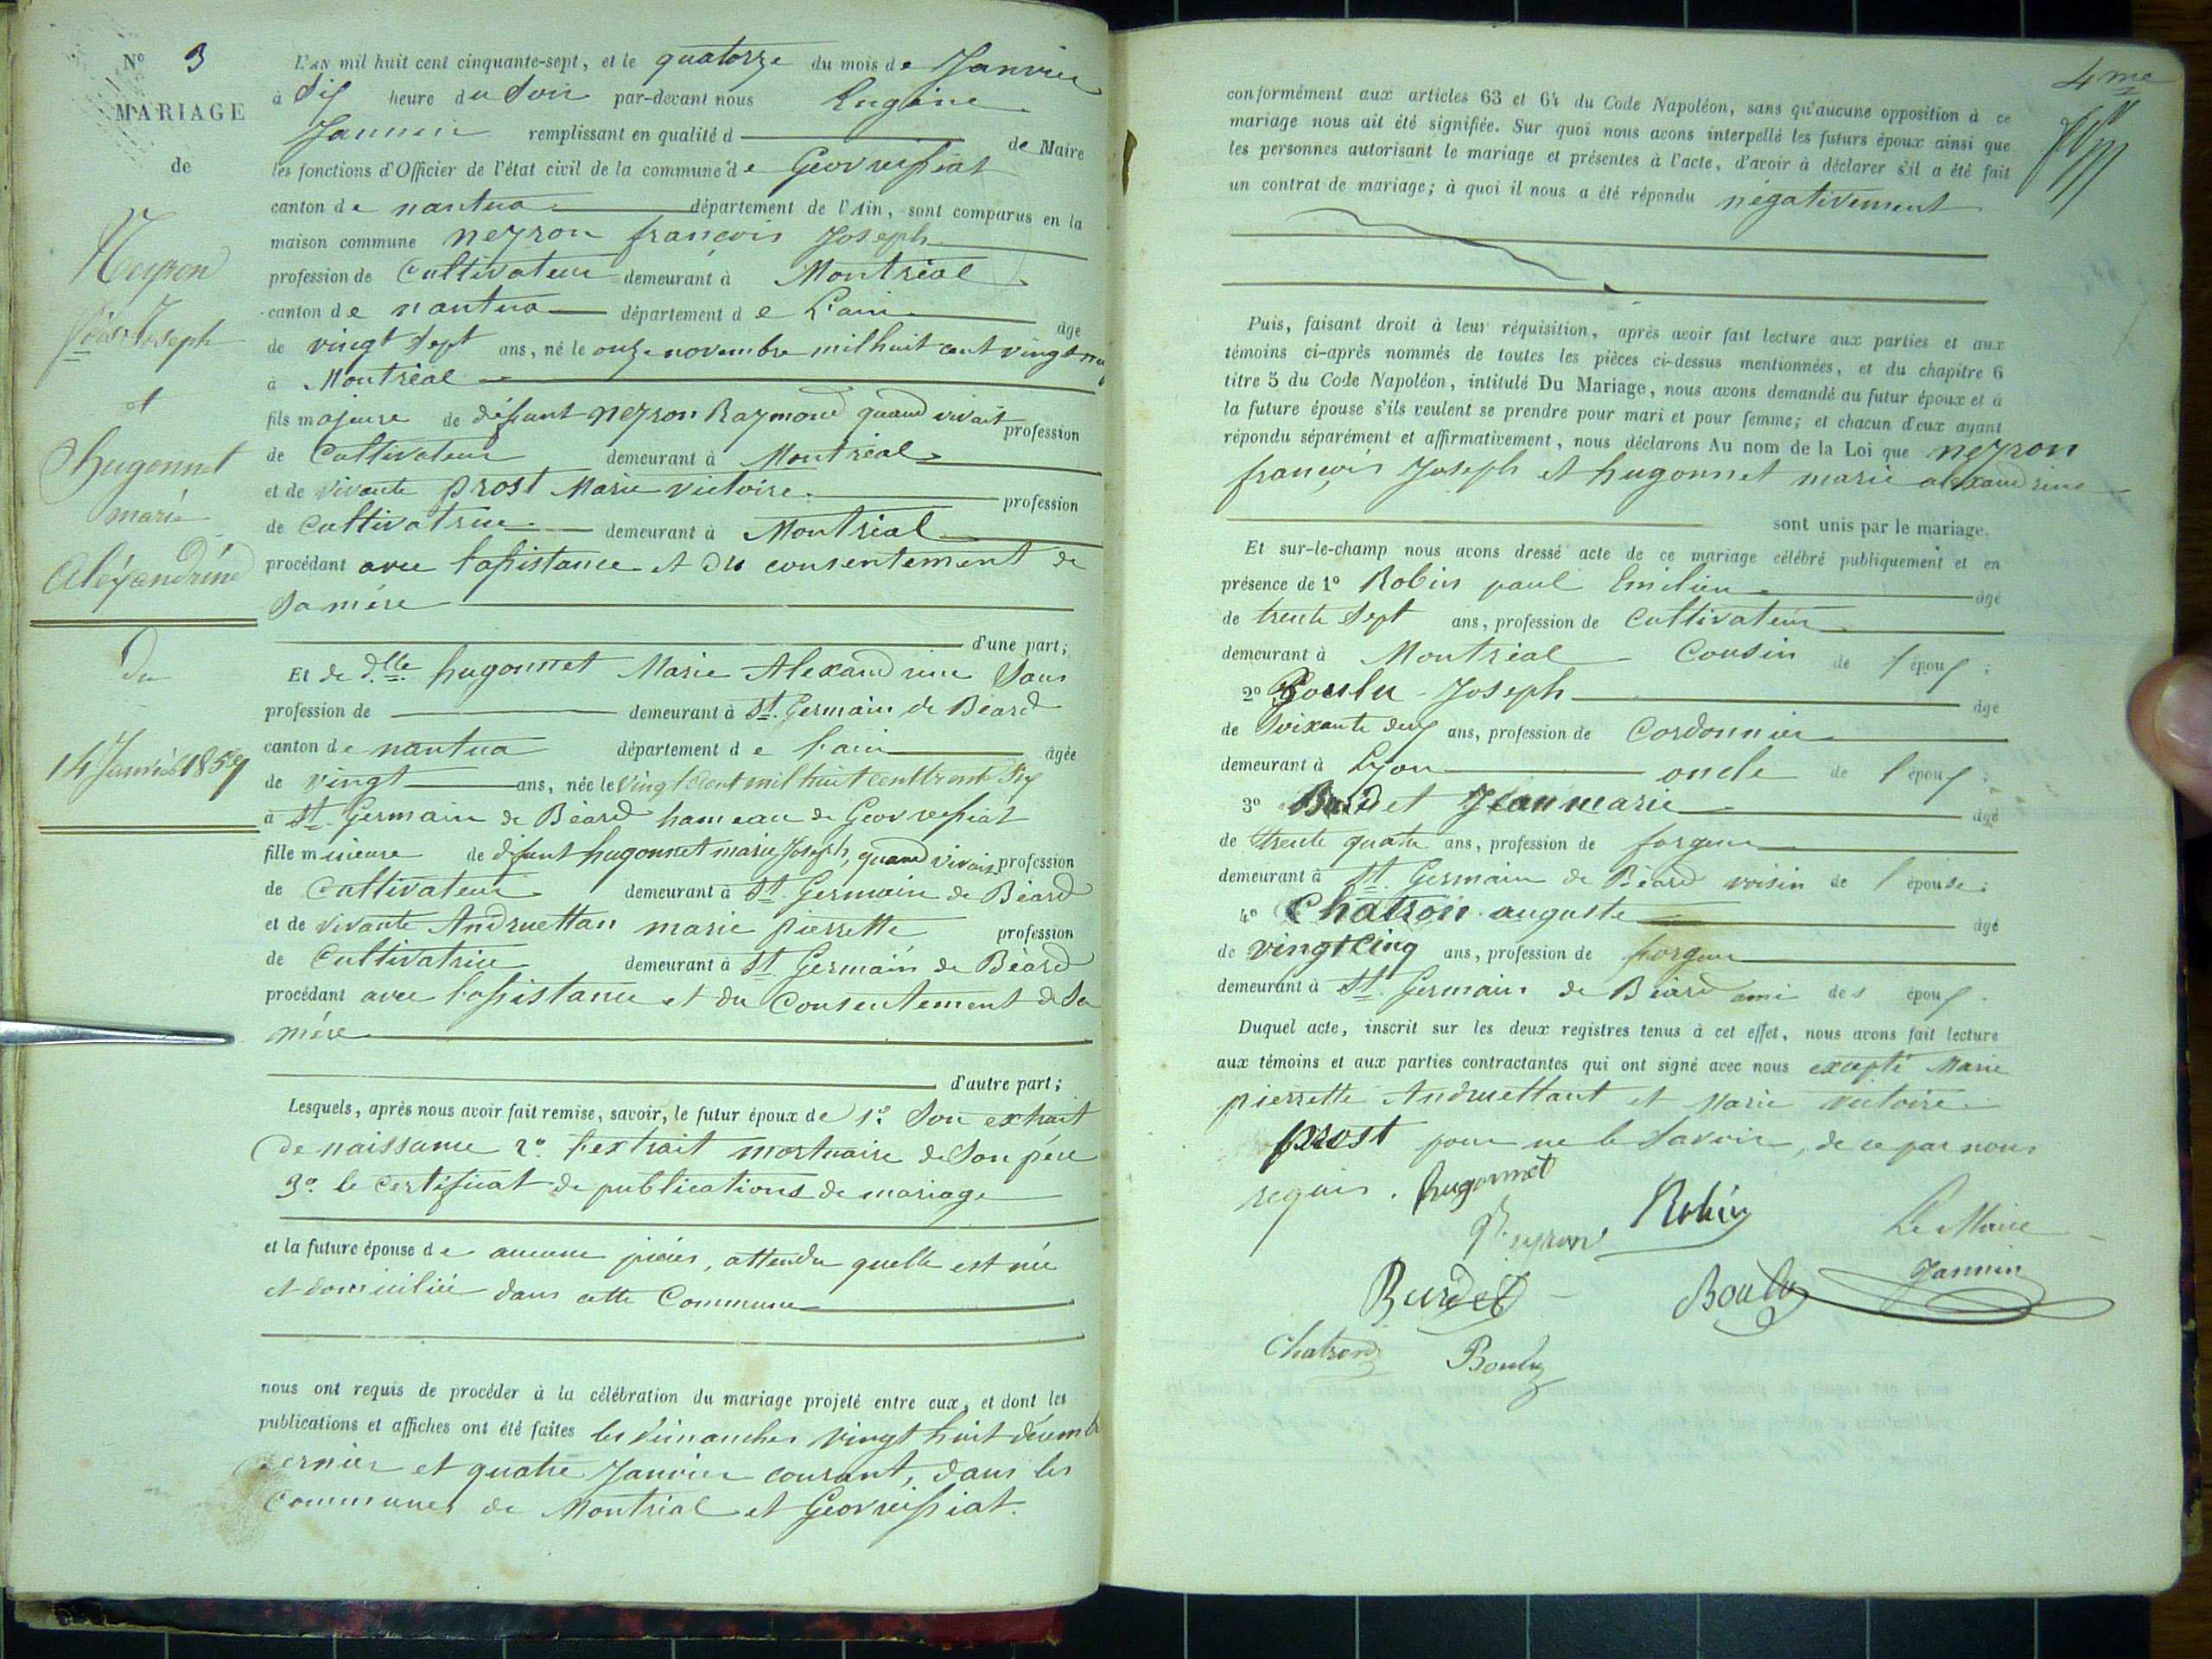 N° 3
MARIAGE
de
Neyron
Fçois Joseph
et
hugonnet
marie
Aléxandrine
Du
14 Janvier 1857
L'AN mil huit cent cinquante-sept, et le quatorze du mois de Janvier
à Six heure du Soir par-devant nous Eugène
Jannin remplissant en qualité d de Maire
les fonctions d'Officier de l'état civil de la commune de Geovreissiat
canton de nantua département de l'Ain, sont comparus en la
maison commune neyron françois Joseph
profession de Cultivateur demeurant à Montréal
canton de nantua département de L'ain âgé
de vingt Sept ans, né le onze novembre mil huit cent vingt neuf
à Montréal
fils majeure de défunt neyron Raymond quand vivait profession
de Cultivateur demeurant à Montréal
et de vivante prost Marie victoire profession
de Cultivatrice demeurant à Montréal
procédant avec l'assistance et du consentement de
Sa mère
d'une part;
Et de d.lle hugonnet Marie Alexandrine Sans
profession de demeurant à St. Germain de Béard
canton de nantua département de l'ain âgée
de vingt ans, née le vingt août mil huit cent trente Six
à St. Germain de Béard hameau de Geovreissiat
fille mineure de défunt hugonnet marie Joseph, quand vivait profession
de Cultivateur demeurant à St. Germain de Béard
et de vivante Andruettan marie pierrette profession
de Cultivatrice demeurant à St. Germain de Béard
procédant avec l'assistance et du Consentement de Sa
mère
d'autre part;
Lesquels, après nous avoir fait remise, savoir, le futur époux de 1° Son extrait
de naissance 2° l'extrait mortuaire de Son père
3° le certificat de publications de mariage
et la future épouse de aucune pièces, attendu quelle est née
et domiciliée dans cette Commune
nous ont requis de procéder à la célébration du mariage projeté entre eux, et dont les
publications et affiches ont été faites les dimanches vingt huit décembre
dernier et quatre Janvier courant, dans les
Communes de Montréal et Geovreissiat.
4me
conformément aux articles 63 et 64 du Code Napoléon, sans qu'aucune opposition à ce
mariage nous ait été signifiée. Sur quoi nous avons interpellé les futurs époux ainsi que
les personnes autorisant le mariage et présentes à l'acte, d'avoir à déclarer s'il a été fait
un contrat de mariage; à quoi il nous a été répondu négativement
Puis, faisant droit à leur réquisition, après avoir fait lecture aux parties et aux
témoins ci-après nommés de toutes les pièces ci-dessus mentionnées, et du chapitre 6
titre 5 du Code Napoléon, intitulé Du Mariage, nous avons demandé au futur époux et à
la future épouse s'ils veulent se prendre pour mari et pour femme; et chacun d'eux ayant
répondu séparément et affirmativement, nous déclarons Au nom de la Loi que neyron
françois Joseph et hugonnet marie alexandrine
sont unis par le mariage.
Et sur-le-champ nous avons dressé acte de ce mariage célébré publiquement et en
présence de 1° Robin paul Emilien âgé
de trente Sept ans, profession de Cultivateur
demeurant à Montréal Cousin de l'époux;
2° Boulu Joseph âgé
de Soixante deux ans, profession de Cordonnier
demeurant à Lyon oncle de l'époux;
3° Burdet Jean marie âgé
de trente quatre ans, profession de forgeur
demeurant à St. Germain de Béard voisin de l'épouse;
4° Chatron auguste âgé
de vingt Cinq ans, profession de forgeur
demeurant à St. Germain de Béard ami des époux.
Duquel acte, inscrit sur les deux registres tenus à cet effet, nous avons fait lecture
aux témoins et aux parties contractantes qui ont signé avec nous excepté Marie
pierrette Andruettant et Marie victoire
prost pour ne le Savoir, de ce par nous
requis. hugonnet
Neyron Robin Le Maire
Burdet Boulu Jannin
Chatron Boulu